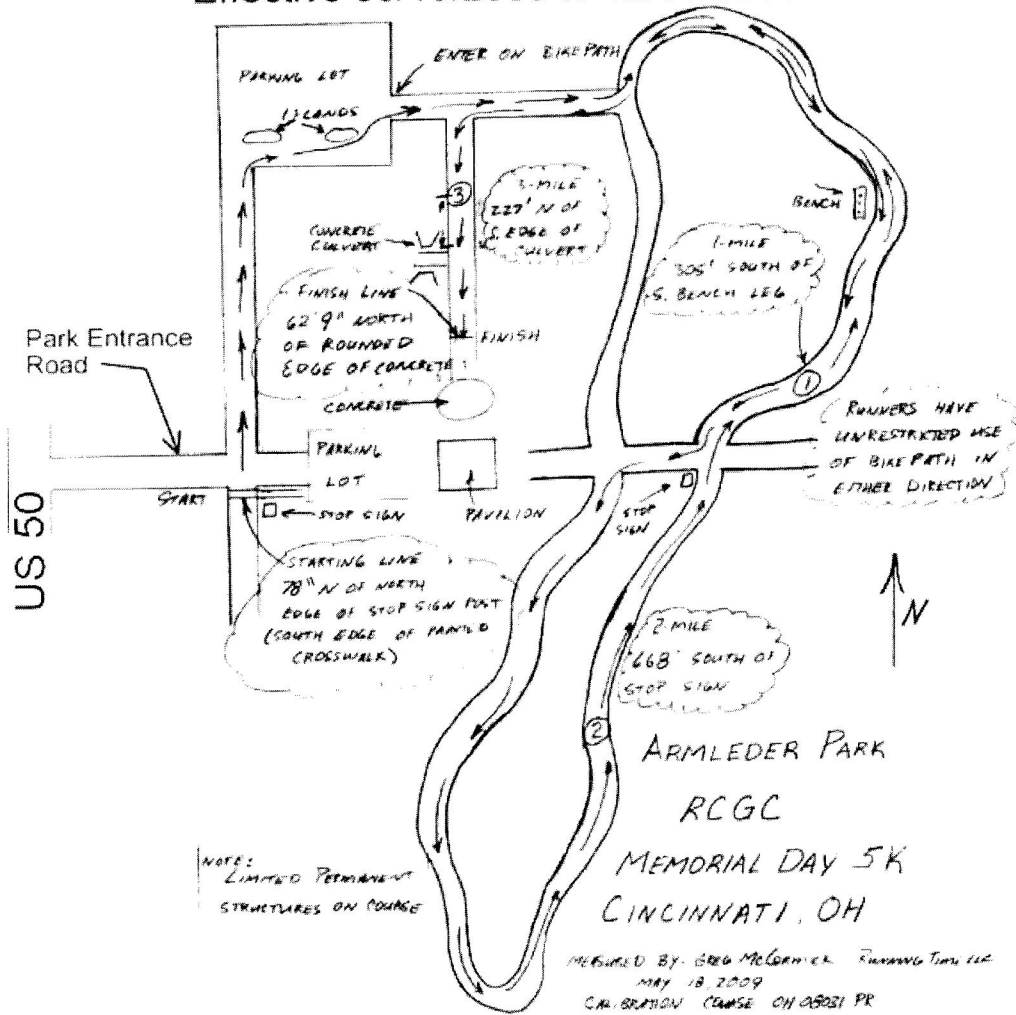 PARKING LOT
ISLANDS
ENTER ON BIKE PATH
3
3-MILE
227' N OF
S. EDGE OF
CULVERT
CONCRETE
CULVERT
BENCH
1-MILE
305' SOUTH OF
S. BENCH LEG
FINISH LINE
62'9" NORTH
OF ROUNDED
EDGE OF CONCRETE
FINISH
CONCRETE
Park Entrance
Road
1
RUNNERS HAVE
UNRESTRICTED USE
OF BIKE PATH IN
EITHER DIRECTION
PARKING
LOT
US 50
START
STOP SIGN
PAVILION
STOP
SIGN
STARTING LINE
78" N OF NORTH
EDGE OF STOP SIGN POST
(SOUTH EDGE OF PAINTED
CROSSWALK)
N
2-MILE
668' SOUTH OF
STOP SIGN
2
ARMLEDER PARK
RCGC
MEMORIAL DAY 5K
CINCINNATI, OH
NOTE:
LIMITED PERMANENT
STRUCTURES ON COURSE
MEASURED BY: GREG McCORMICK RUNNING TIME LLC
MAY 18, 2009
CALIBRATION COURSE OH 08031 PR